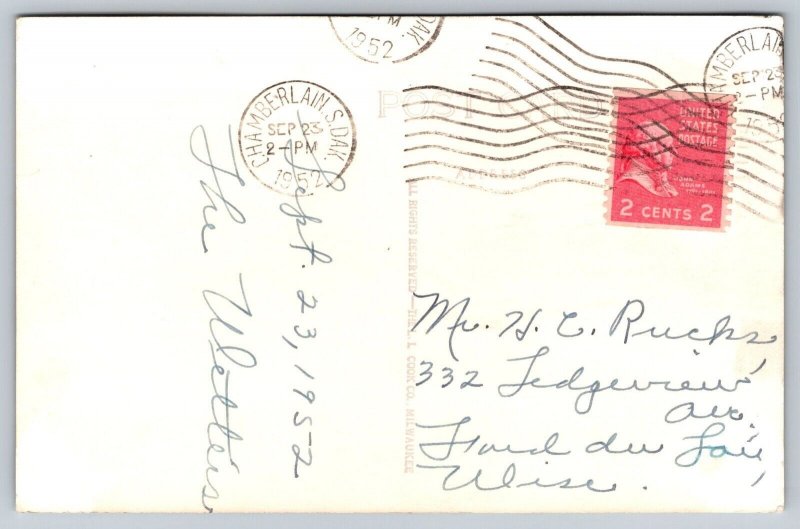 1952
S. DAK.
CHAMBERLAIN, S. DAK.
SEP 23
2-PM
1952
CHAMBERLAIN
SEP 23
2-PM
POST CARD
ADDRESS
UNITED
STATES
POSTAGE
JOHN
ADAMS
2 CENTS 2
Sept. 23, 1952
The Welters
ALL RIGHTS RESERVED—THE L. L. COOK CO., MILWAUKEE
Mr. H. C. Rucks,
332 Ledgeview
Ave.
Fond du Lac,
Wisc.